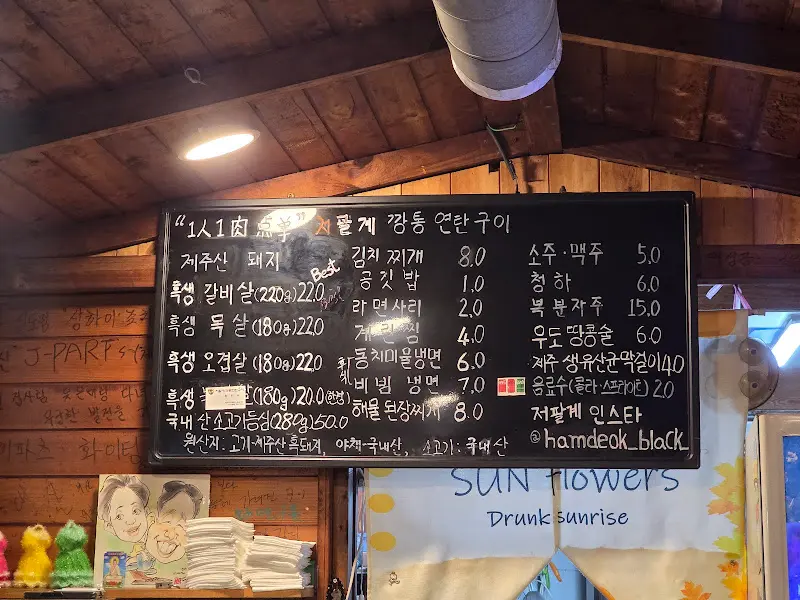 "1人1肉 点单" 저팔계 깡통 연탄구이
제주산 돼지
Best
흑생 갈비살 (220g) 22.0
흑생 목살 (180g) 22.0
흑생 오겹살 (180g) 22.0
흑생 살 (180g) 20.0 (한정)
국내산소고기등심(280g) 50.0
김치 찌개 8.0
공깃밥 1.0
라면사리 2.0
계란찜 4.0
동치미물냉면 6.0
비빔 냉면 7.0
해물 된장찌개 8.0
소주·맥주 5.0
청하 6.0
복분자주 15.0
우도 땅콩술 6.0
제주 생유산균막걸이 4.0
음료수(콜라·스프라이트) 2.0
저팔계 인스타
@hamdeok_black_
원산지: 고기-제주산흑돼지, 야채-국내산, 소고기:국내산
J-PART
화이팅
SUN flowers
Drunk sunrise